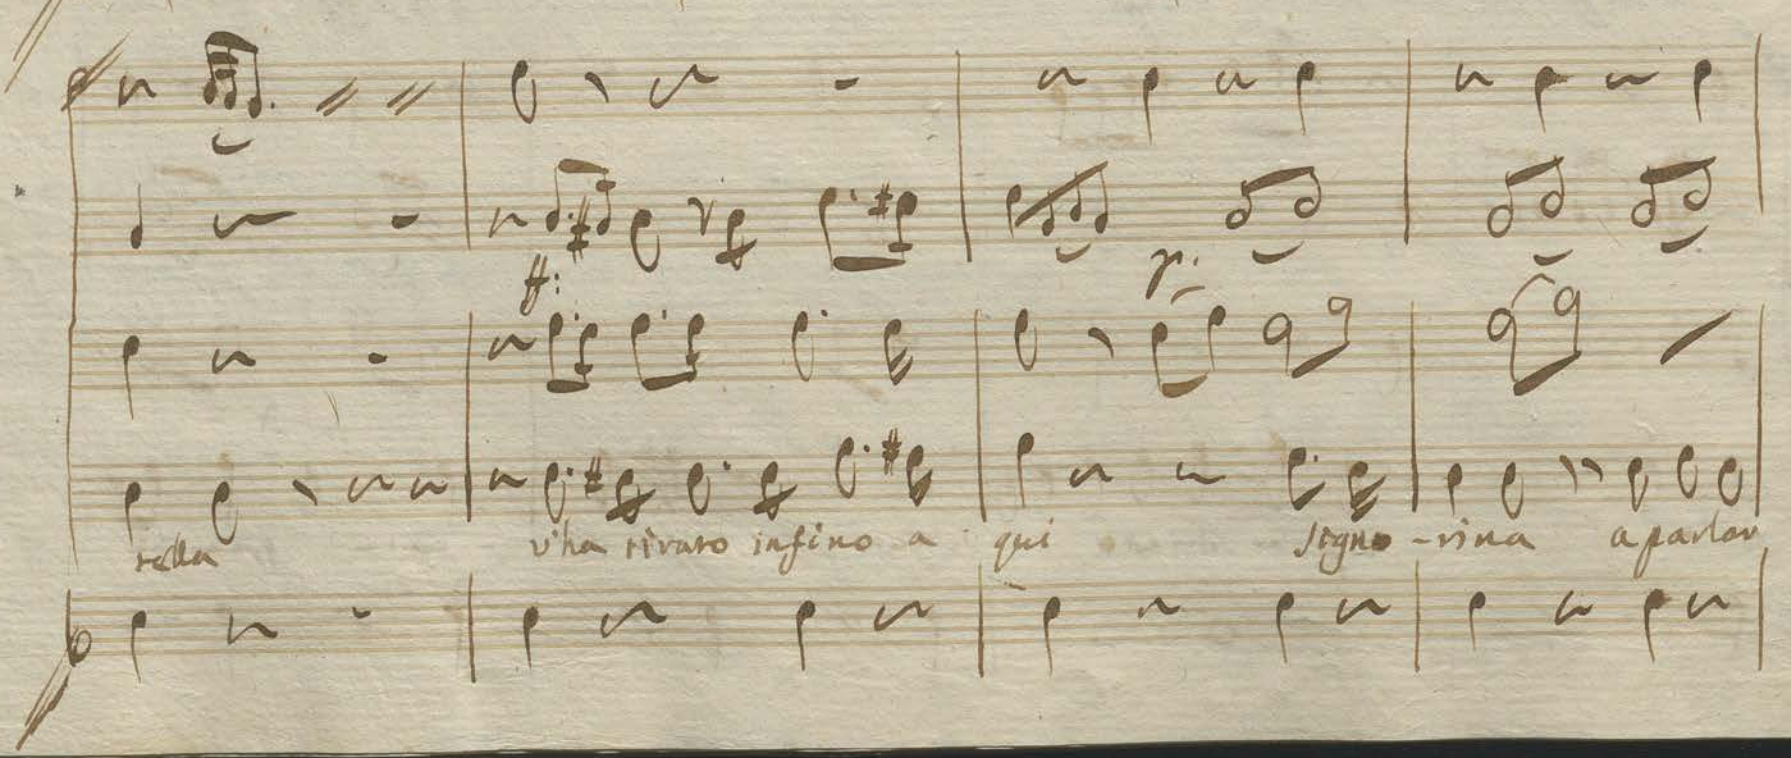 f:
p.
rella v'ha tirato infino a qui Signo-rina a parlar